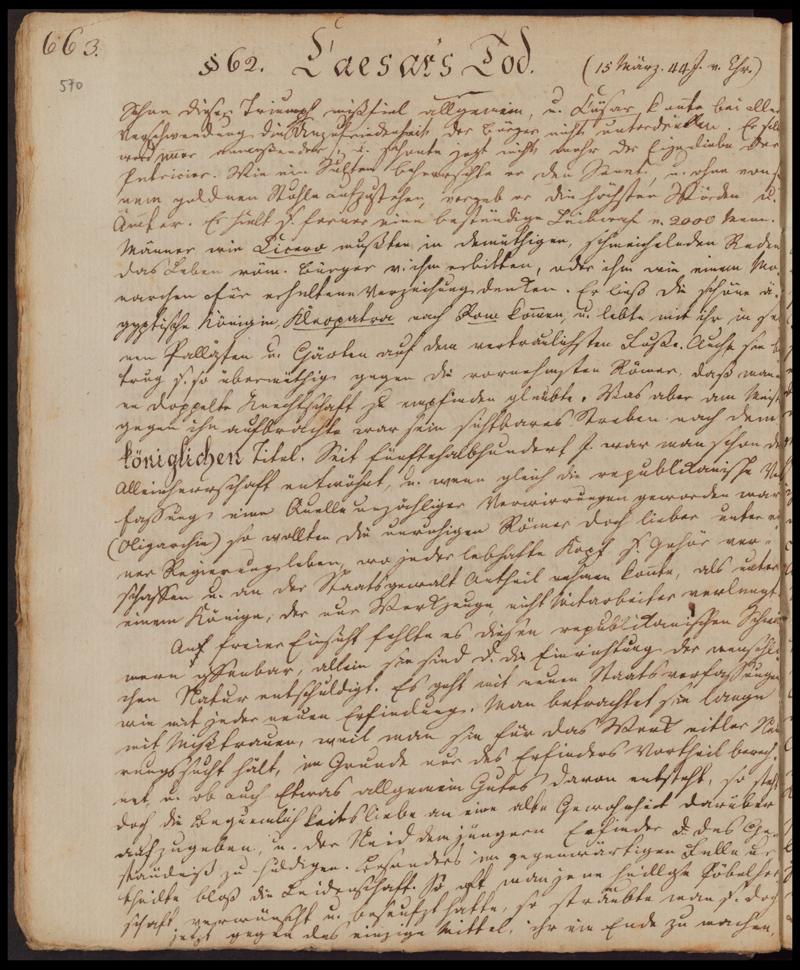 663.
570
§ 62. Caesar's Tod. (15 März. 44 J. v. Chr.)
Schon dieser Triumph mißfiel allgemein, u. Cäsar konnte bei aller
Verschwendung die Unzufriedenheit der Bürger nicht unterdrücken. Er selbst
ward immer anmaßender, u. schonte jetzt nicht mehr der Eigenliebe der
Patricier. Wie ein Sultan beherrschte er den Senat, u. ohne von s.
nem goldnen Stuhle aufzustehen, vergab er die höchsten Würden u.
Ämter. Er hielt s. ferner eine beständige Leibwache v. 2000 Mann.
Männer wie Cicero mußten in demüthigen, schmeichelnden Reden
das Leben röm. Bürger v. ihm erbitten, oder ihm wie einem Mo
narchen für erhaltene Verzeihung danken. Er ließ die schöne ä-
gyptische Königin, Kleopatra nach Rom kommen, u. lebte mit ihr in se
nen Pallästen u. Gärten auf dem vertraulichsten Fuße. Auch sie be
trug s. so übermüthig gegen die vornehmsten Römer, daß man ei
ne doppelte Knechtschaft zu empfinden glaubte. Was aber am Meisten
gegen ihn aufbrachte war sein sichtbares Streben nach dem
königlichen Titel. Seit fünftehalbhundert J. war man schon der
Alleinherrschaft entwöhnt, u. wenn gleich die republikanische Ver
fassung eine Quelle unzähliger Verwirrungen geworden war
(Oligarchie) so wollten die unruhigen Römer doch lieber unter ei
ner Regierung leben, wo jeder lebhafte Kopf s. Gehör ver-
schaffen u. an der Staatsgewalt Antheil nehmen konnte, als unter
einem Könige, der nur Werkzeuge, nicht Mitarbeiter verlangt.
An freier Einsicht fehlte es diesen republikanischen Schwär
mern offenbar, allein sie sind d. die Einrichtung der menschli
chen Natur entschuldigt. Es geht mit neuen Staatsverfassungen
wie mit jeder neuen Erfindung. Man betrachtet sie lange
mit Mißtrauen, weil man sie für das Werk eitler Neu
rungssucht hält, im Grunde nur des Erfinders Vortheil berech
net, u. ob auch Etwas allgemein Gutes davon entsteht, so steht
doch die Bequemlichkeitsliebe an eine alte Gewohnheit darüber
aufzugeben, u. der Neid dem jüngern Erfinder d. das Ge
ständniß zu huldigen. Besonders im gegenwärtigen Falle ur
theilte bloß die Leidenschaft. So oft man jene heillose Pöbelherr
schaft verwünscht u. beseufzt hatte, so sträubte man s. doch
jetzt gegen das einzige Mittel, ihr ein Ende zu machen,